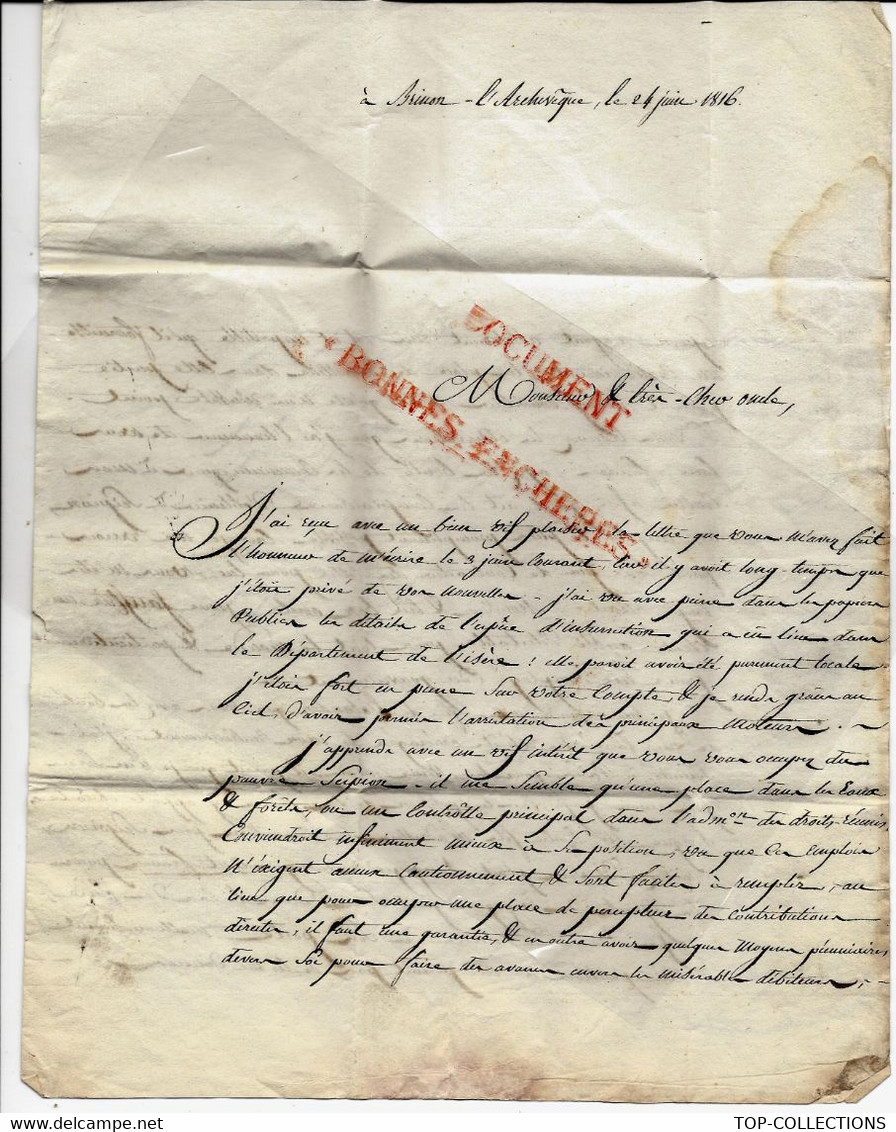 à Brinon - l'Archevêque, le 24 juin 1816.
DOCUMENT
* BONNES ENCHERES *
Monsieur & très-Cher oncle,
J'ai reçu avec un bien vif plaisir, la lettre que vous m'avez fait
l'honneur de m'écrire le 3 juin Courant, car il y avoit long-temps que
j'étois privé de vos nouvelles - j'ai vu avec peine dans les papiers
Publics les détails de l'espèce d'insurrection qui a eu lieu dans
le Département de l'isère : elle paroit avoir été purement locale
j'étois fort en peine sur votre Compte, & je rends grâces au
Ciel, d'avoir permis l'arrestation des principaux Moteurs. -
j'apprends avec un vif intérêt que vous vous occupez du
pauvre Scipion - il me Semble qu'une place dans les Eaux
& forêts, ou un Contrôlle principal dans l'adm.on des droits réunis
Conviendroit infiniment mieux à Sa position, vu que Ces emplois
N'éxigent aucun Cautionnement, & Sont faciles à remplir, - au
lieu que pour occuper une place de percepteur des Contributions
directes, il faut une garantie, & en outre avoir quelques Moyens pécuniaires
devers Soi pour faire des avances envers les misérables débiteurs, -
TOP-COLLECTIONS